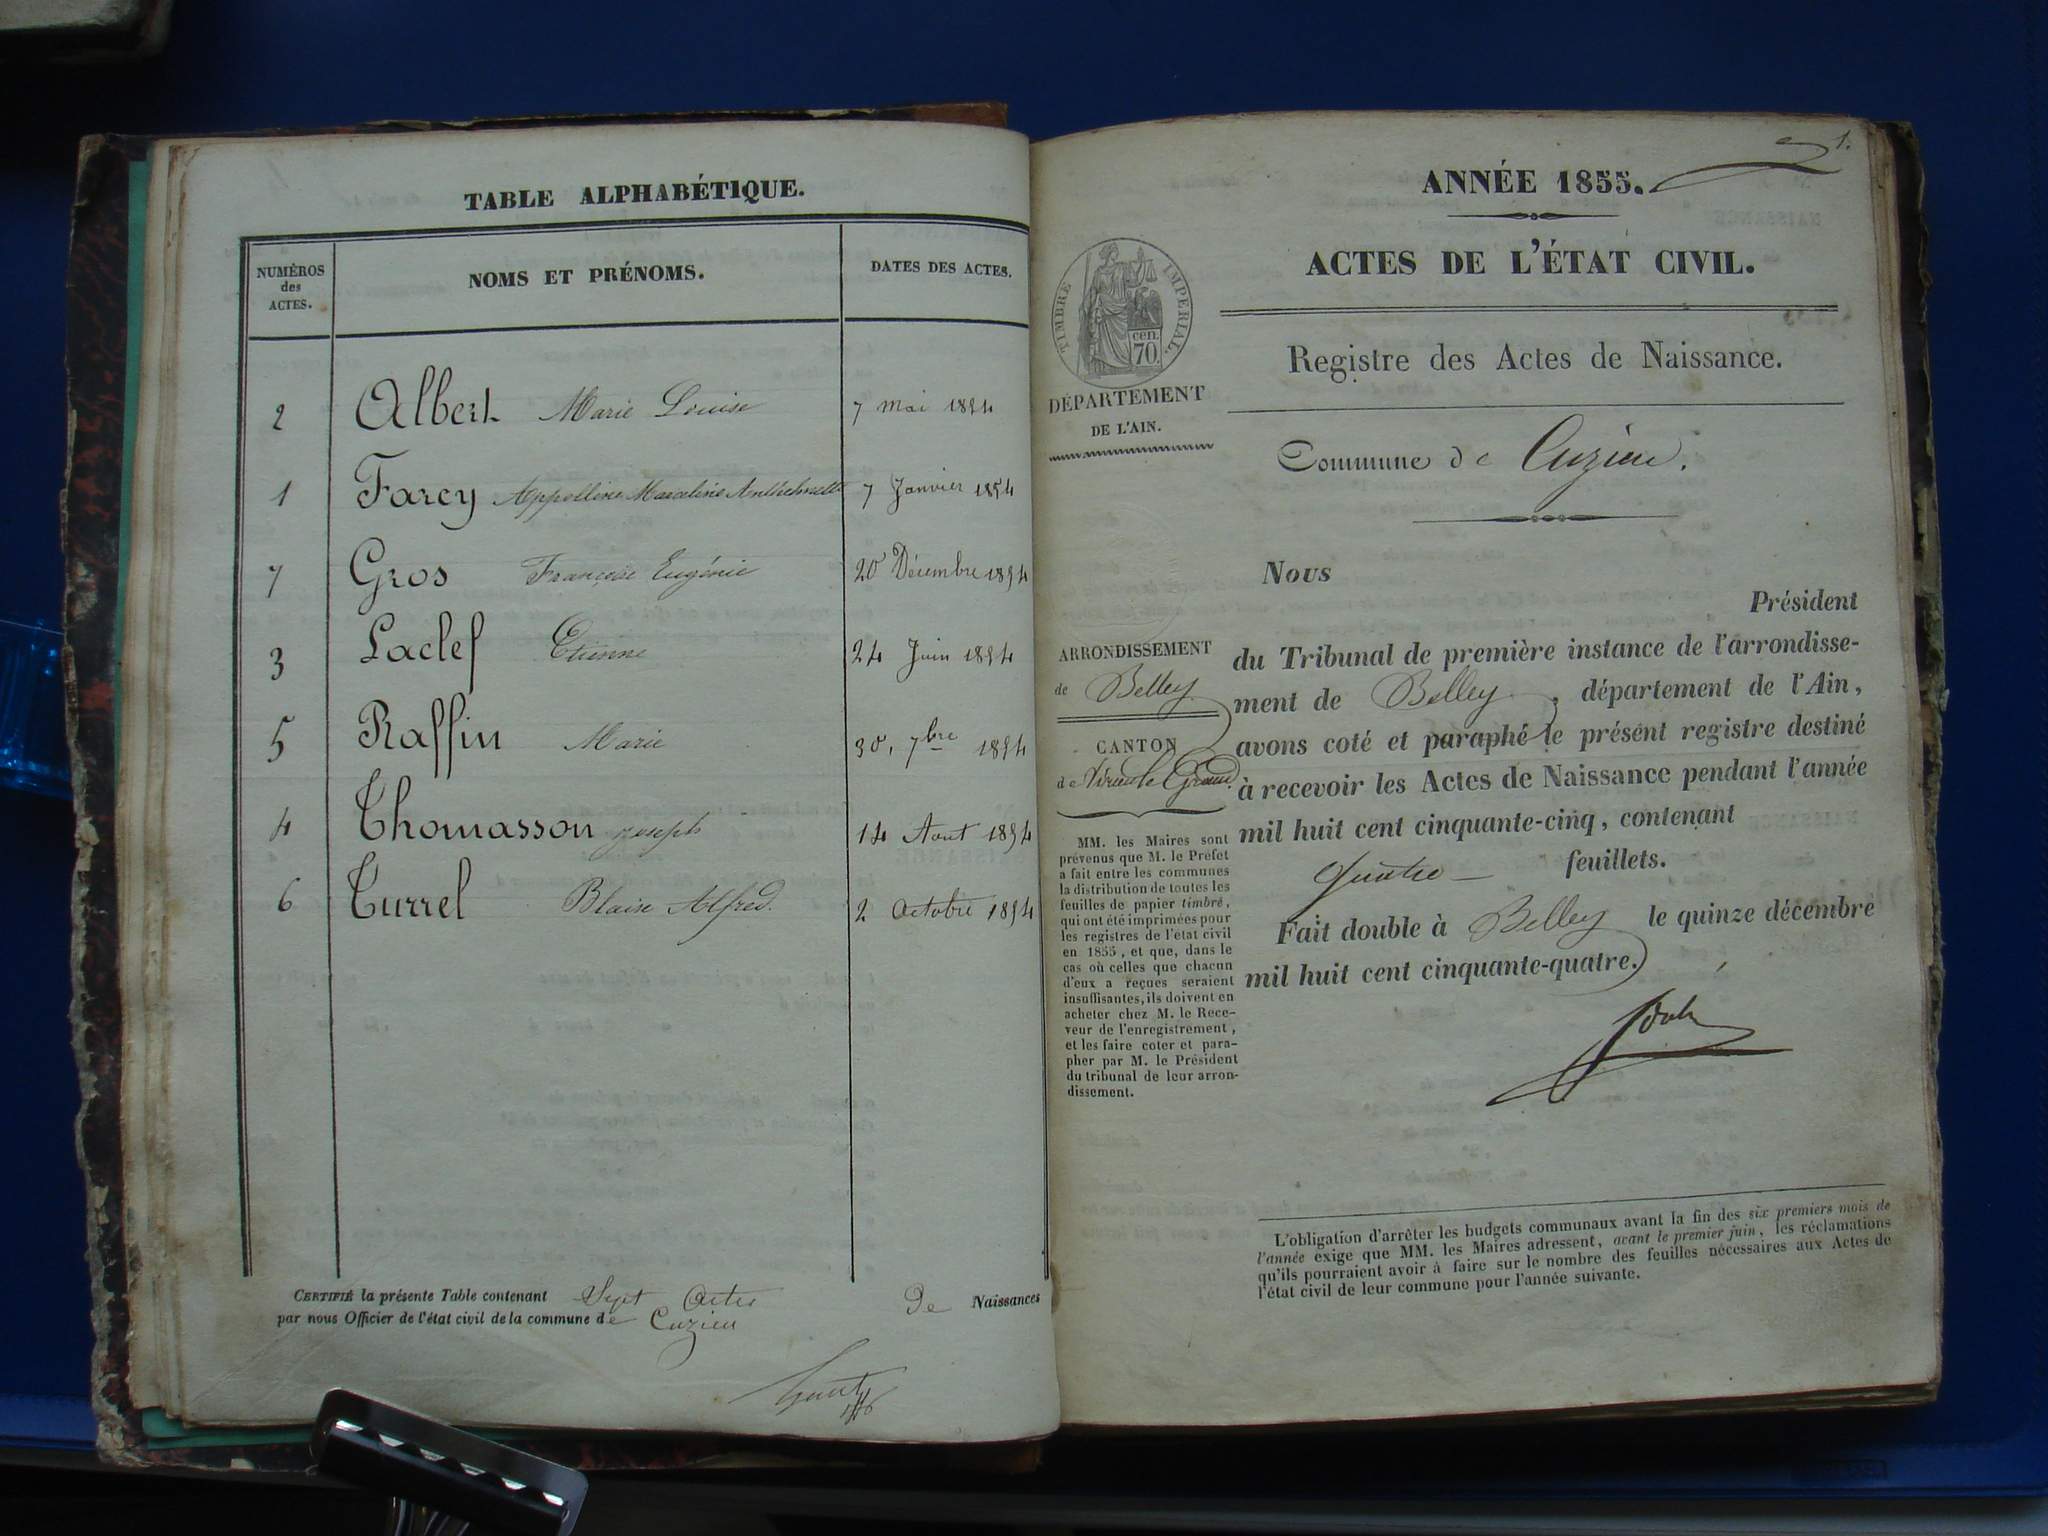 TABLE ALPHABÉTIQUE.
NUMÉROS
des
ACTES.
NOMS ET PRÉNOMS.
DATES DES ACTES.
2 Albert Marie Louise 7 Mai 1854
1 Farcy Appolline Marceline Anthelmette 7 Janvier 1854
7 Gros Françoise Eugénie 20 Décembre 1854
3 Laclef Etienne 24 Juin 1854
5 Raffin Marie 30, 7bre 1854
4 Thomasson joseph 14 Aout 1854
6 Turrel Blaise Alfred. 2 Octobre 1854
CERTIFIÉ la présente Table contenant Sept Actes De Naissances
par nous Officier de l'état civil de la commune de Cuzieu
1.
ANNÉE 1855.
ACTES DE L'ÉTAT CIVIL.
TIMBRE IMPERIAL.
cen.
70.
Registre des Actes de Naissance.
DÉPARTEMENT
DE L'AIN.
Commune de Cuzieu.
Nous
Président
du Tribunal de première instance de l'arrondisse-
ment de Belley, département de l'Ain,
avons coté et paraphé le présent registre destiné
à recevoir les Actes de Naissance pendant l'année
mil huit cent cinquante-cinq, contenant
Quatre feuillets.
Fait double à Belley le quinze décembre
mil huit cent cinquante-quatre.
ARRONDISSEMENT
de Belley
CANTON
de Virieu le Grand.
MM. les Maires sont
prévenus que M. le Préfet
a fait entre les communes
la distribution de toutes les
feuilles de papier timbré,
qui ont été imprimées pour
les registres de l'état civil
en 1855, et que, dans le
cas où celles que chacun
d'eux a reçues seraient
insuffisantes, ils doivent en
acheter chez M. le Rece-
veur de l'enregistrement,
et les faire coter et para-
pher par M. le Président
du tribunal de leur arron-
dissement.
L'obligation d'arrêter les budgets communaux avant la fin des six premiers mois de
l'année exige que MM. les Maires adressent, avant le premier juin, les réclamations
qu'ils pourraient avoir à faire sur le nombre des feuilles nécessaires aux Actes de
l'état civil de leur commune pour l'année suivante.